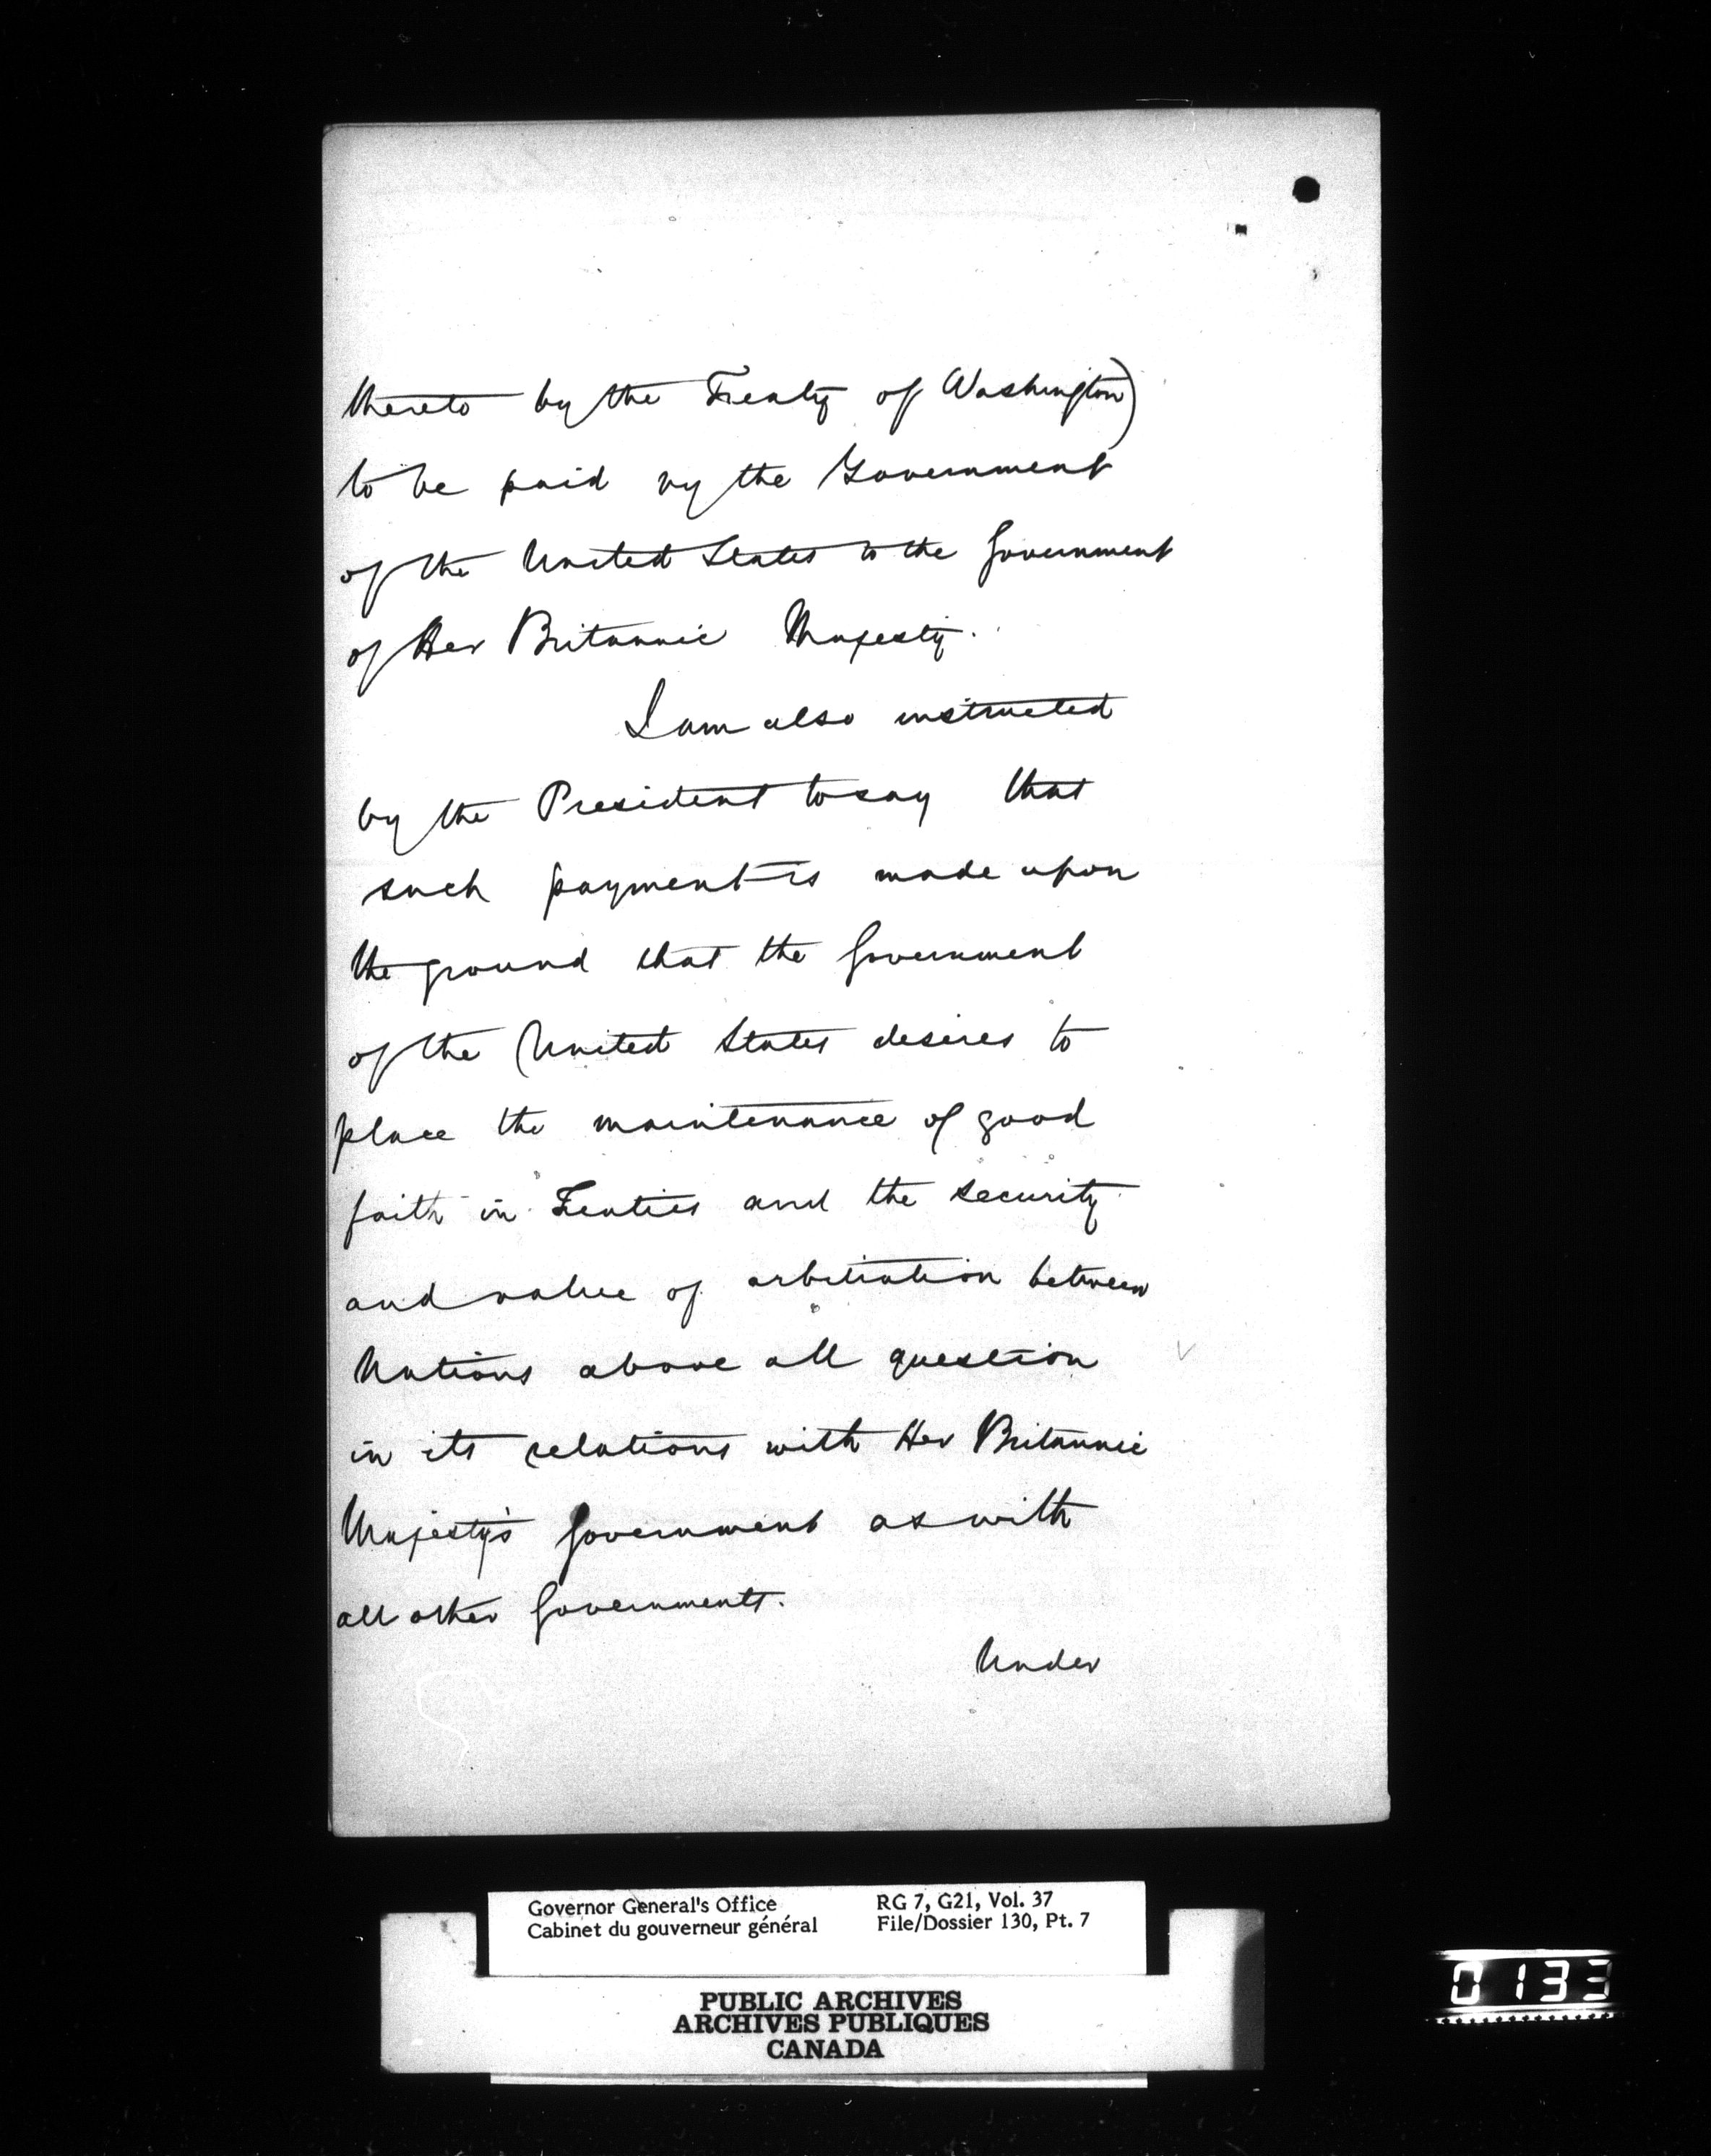 thereto by the Treaty of Washington)
to be paid by the Government
of the United States to the Government
of Her Britannic Majesty.
I am also instructed
by the President to say that
such payment is made upon
the ground that the Government
of the United States desires to
place the maintenance of good
faith in Treaties and the security
and value of arbitration between
Nations above all question
in its relations with Her Britannic
Majesty's Government as with
all other Governments.
Under
Governor General's Office RG 7, G21, Vol. 37
Cabinet du gouverneur général File/Dossier 130, Pt. 7
PUBLIC ARCHIVES
ARCHIVES PUBLIQUES
CANADA
0133